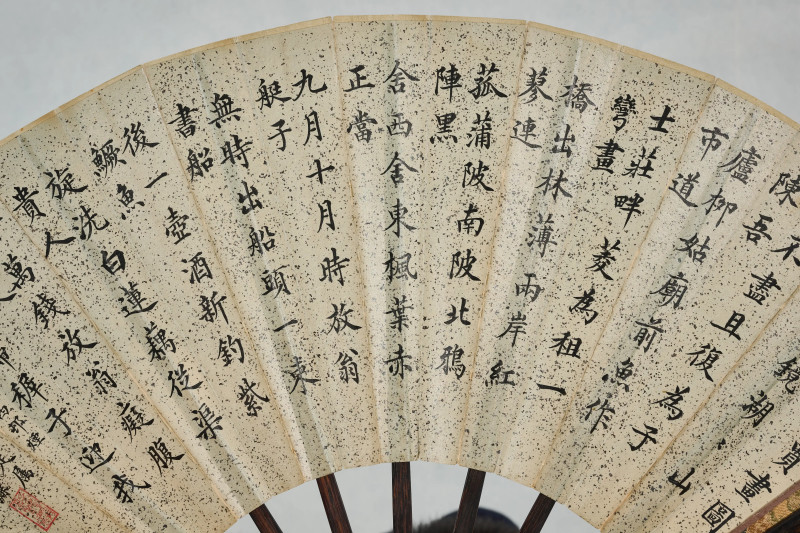 買畫圖
鏡湖山
不盡且復為子
陳吾
廬柳姑廟前魚作
市道
士莊畔菱為租一
彎畫
橋出林薄兩岸紅
蓼連
菰蒲陂南陂北鴉
陣黑
舍西舍東楓葉赤
正當
九月十月時放翁
艇子
無時出船頭一束
書船
後一壺酒新釣紫
鱖魚
旋洗白蓮藕從渠
貴人
萬錢放翁癡腹
稚子迎我